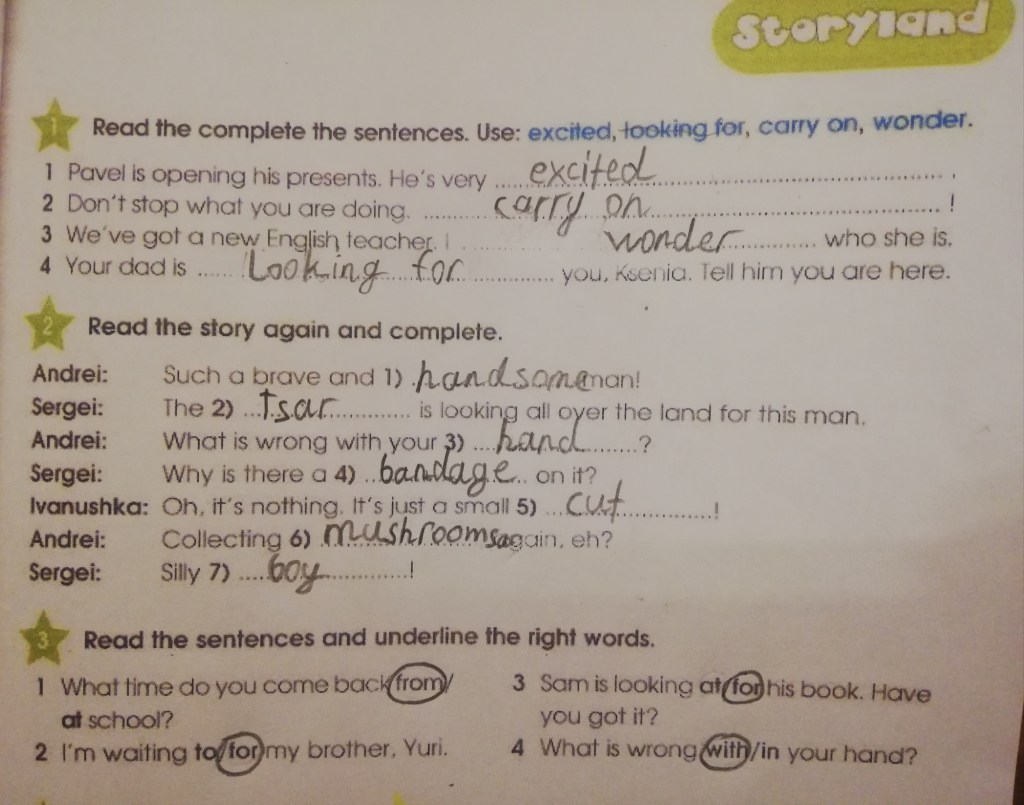 Storyland
1 Read the complete the sentences. Use: excited, looking for, carry on, wonder.
1 Pavel is opening his presents. He's very ..... excited ..... .
2 Don't stop what you are doing. ..... carry on ..... !
3 We've got a new English teacher. I ..... wonder ..... who she is.
4 Your dad is ..... Looking for ..... you, Ksenia. Tell him you are here.
2 Read the story again and complete.
Andrei: Such a brave and 1) handsome man!
Sergei: The 2) ... tsar ..... is looking all over the land for this man.
Andrei: What is wrong with your 3) .... hand ..... ?
Sergei: Why is there a 4) .. bandage .. on it?
Ivanushka: Oh, it's nothing. It's just a small 5) ... cut ..... !
Andrei: Collecting 6) mushrooms again, eh?
Sergei: Silly 7) .... boy ..... !
3 Read the sentences and underline the right words.
1 What time do you come back from/
at school?
2 I'm waiting to/for my brother, Yuri.
3 Sam is looking at/for his book. Have
you got it?
4 What is wrong with/in your hand?